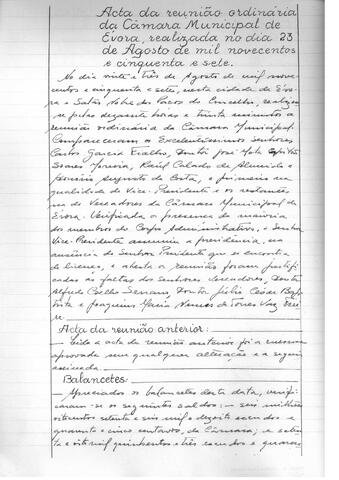 Acta da reunião ordinária
da Câmara Municipal de
Évora, realizada no dia 23
de Agosto de mil novecentos
e cinquenta e sete.
No dia vinte e três de Agosto de mil nove-
centos e cinquenta e sete, nesta cidade de Évo-
ra e Salão Nobre dos Paços do Concelho, realizou-
se pelas dezassete horas e trinta minutos a
reunião ordinária da Câmara Municipal.
Compareceram os Excelentíssimos senhores
Carlos Garcia Fialho, Doutor José
Soares Moreira, Raúl Calado de Almeida e
Augusto da Costa, o primeiro na
qualidade de Vice-Presidente e os restantes
na de Vereadores da Câmara Municipal de
Évora. Verificada a presença da maioria
dos membros do Corpo Administrativo, o Senhor
Vice-Presidente assumiu a presidência, na
ausência do Senhor Presidente que se encontra
de licença, e aberta a reunião foram justifi-
cadas as faltas dos Senhores Vereadores, Doutor
Alfredo Coelho Serrano, Doutor Júlio César Bap-
tista e Joaquim Maria Nunes de Torres Vaz Frei-
re.
Acta da reunião anterior:
— Lida a acta da reunião anterior foi a mesma
aprovada sem qualquer alteração e a seguir
assinada.
Balancetes:
— Apreciados os balancetes desta data, verifi-
caram-se os seguintes saldos: — seis milhões
oitocentos setenta e seis mil e dezoito escudos e
quarenta e cinco centavos, da Câmara; e seten-
ta e oito mil quinhentos e três escudos e quaren-